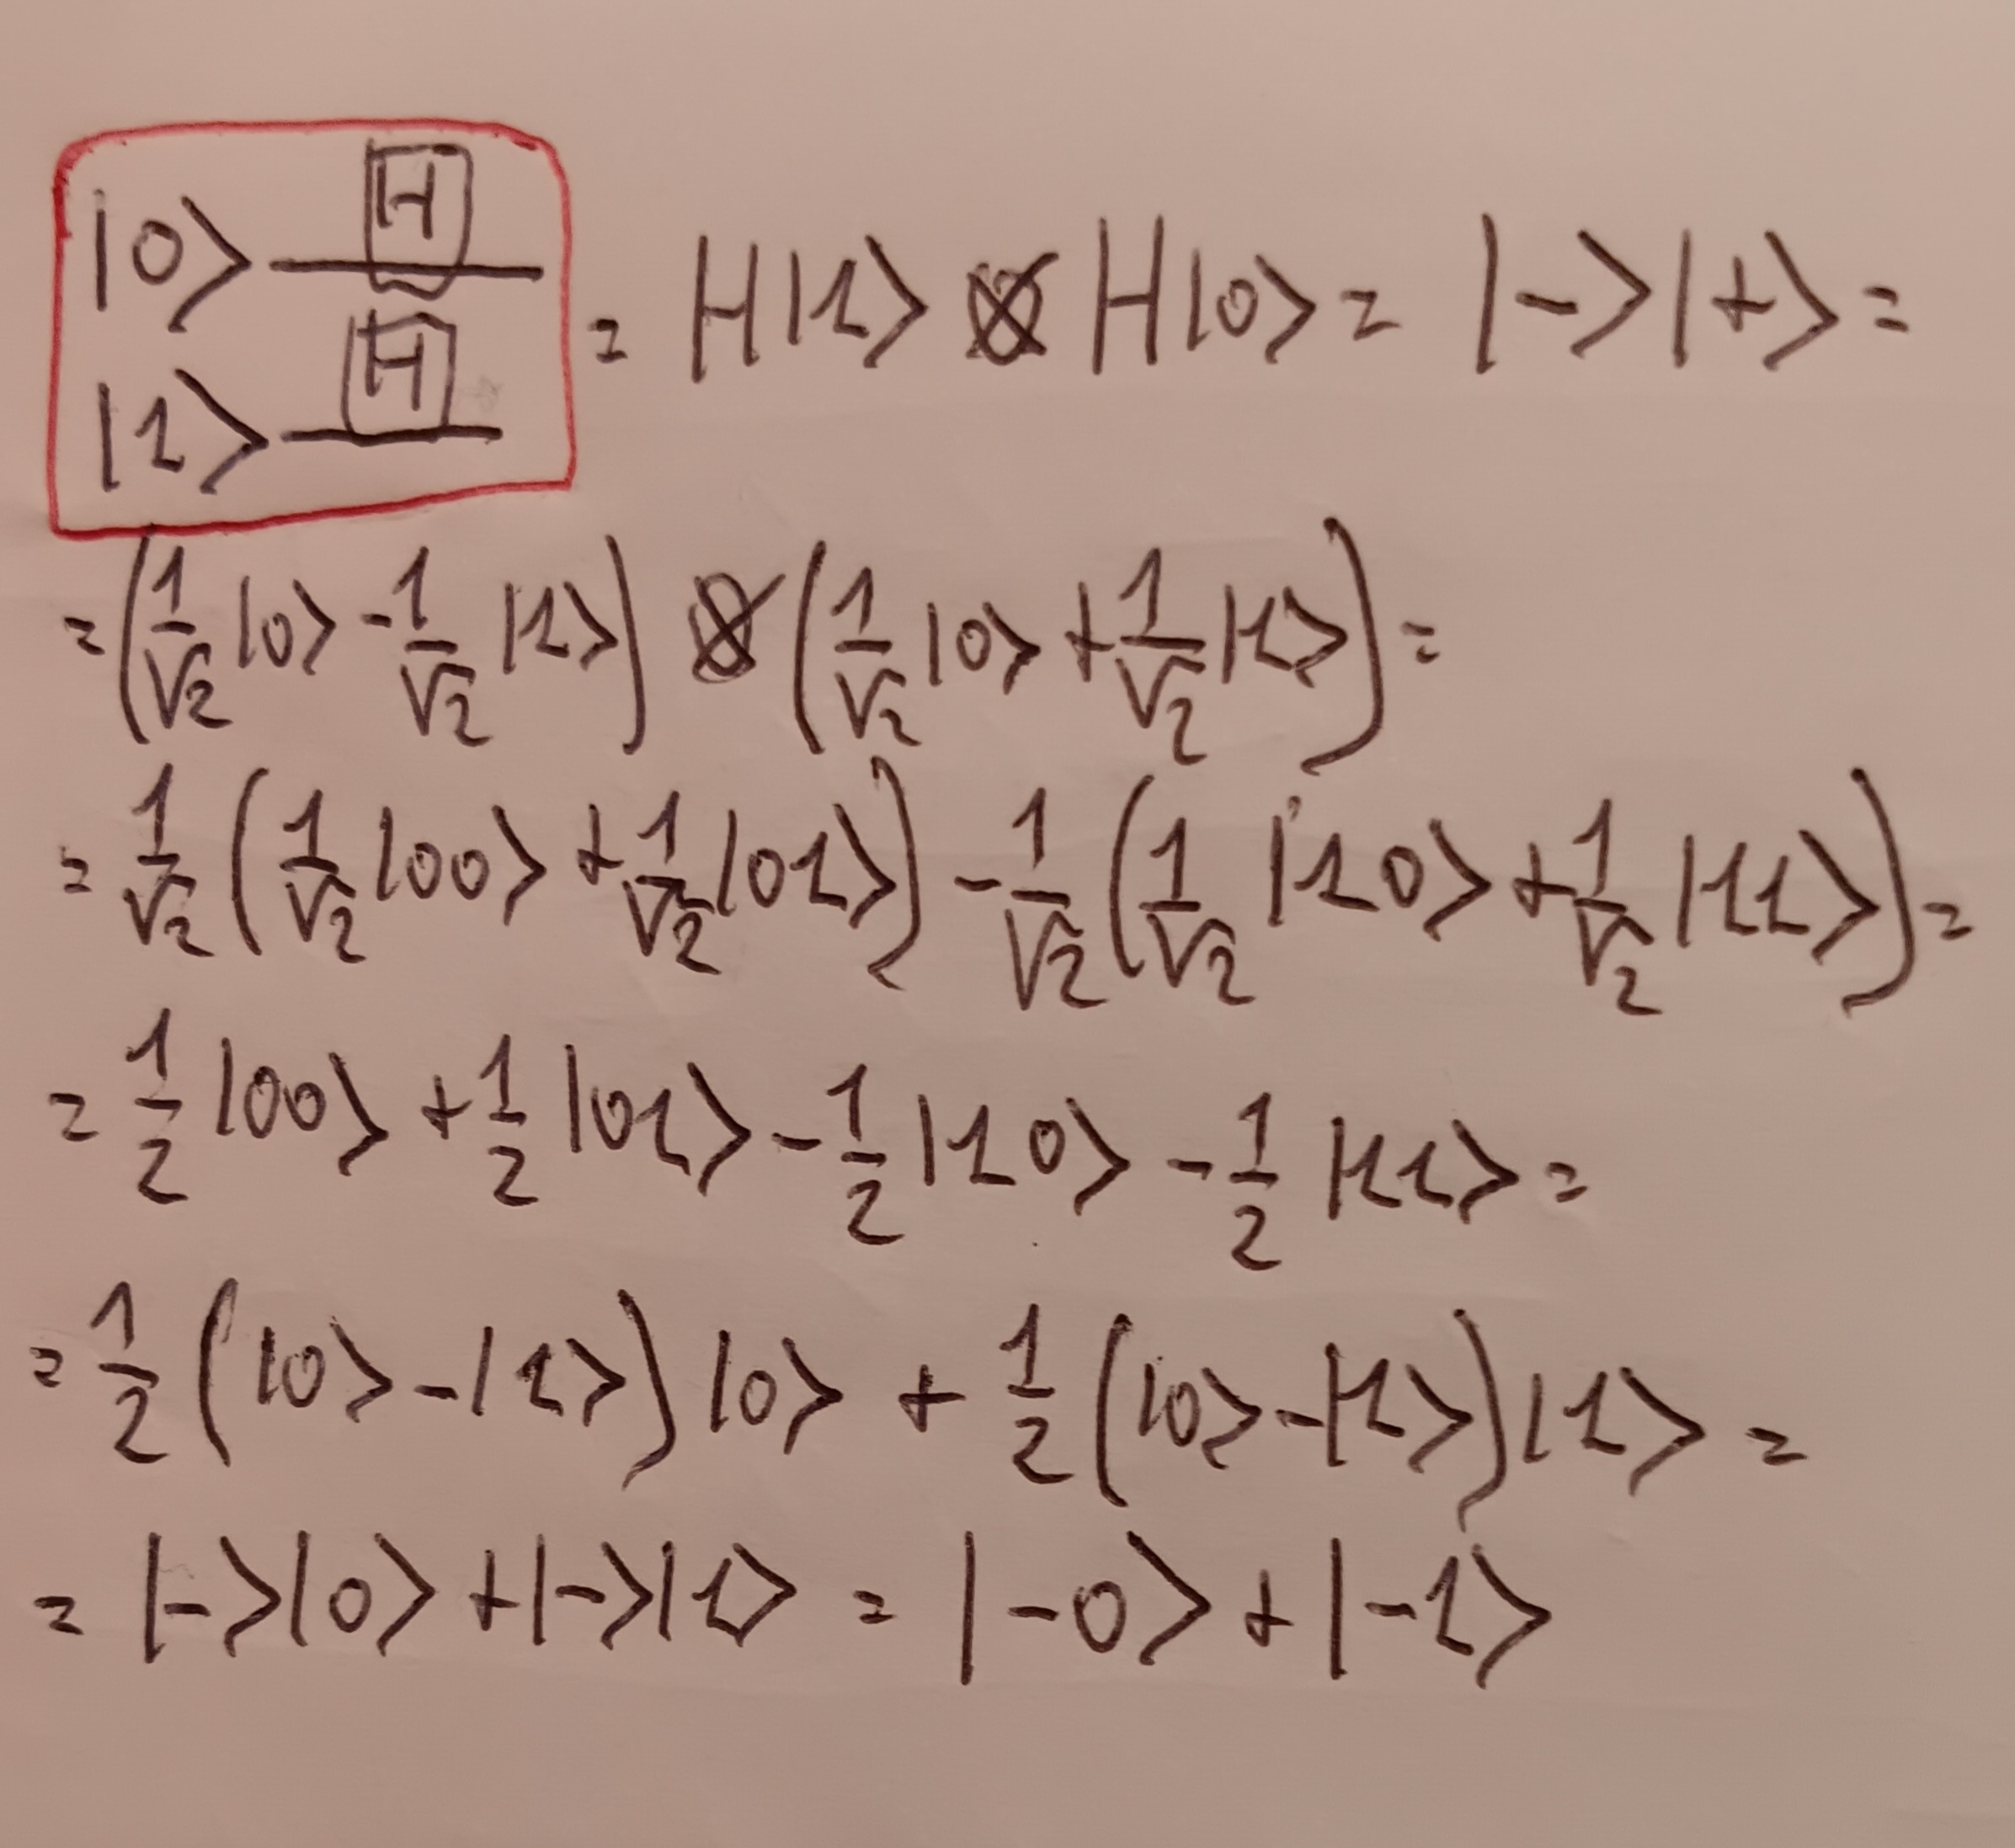 |0⟩ H
|1⟩ H
= H|1⟩ ⊗ H|0⟩ = |-⟩|+⟩ =
= (1/√2 |0⟩ - 1/√2 |1⟩) ⊗ (1/√2 |0⟩ + 1/√2 |1⟩) =
= 1/√2 (1/√2 |00⟩ + 1/√2 |01⟩) - 1/√2 (1/√2 |10⟩ + 1/√2 |11⟩) =
= 1/2 |00⟩ + 1/2 |01⟩ - 1/2 |10⟩ - 1/2 |11⟩ =
= 1/2 (|0⟩ - |1⟩) |0⟩ + 1/2 (|0⟩ - |1⟩) |1⟩ =
= |-⟩|0⟩ + |-⟩|1⟩ = |-0⟩ + |-1⟩